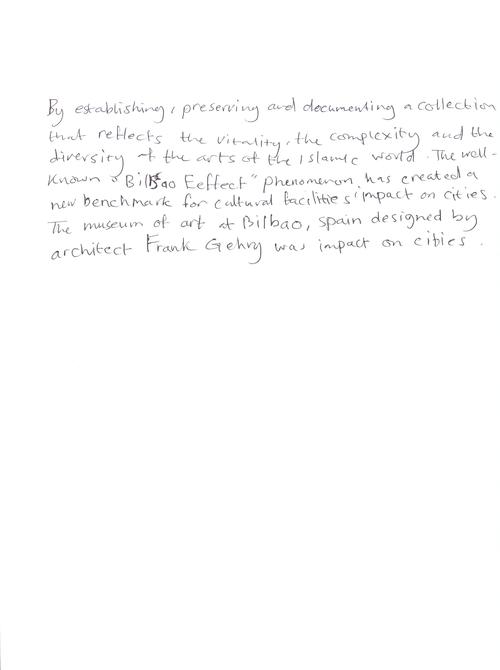 By establishing, preserving and documenting a collection
that reflects the vitality, the complexity and the
diversity of the arts of the Islamic world. The well-
known "Bilbao Eeffect" phenomenon, has created a
new benchmark for cultural facilities' impact on cities.
The museum of art at Bilbao, spain designed by
architect Frank Gehry was impact on cities.